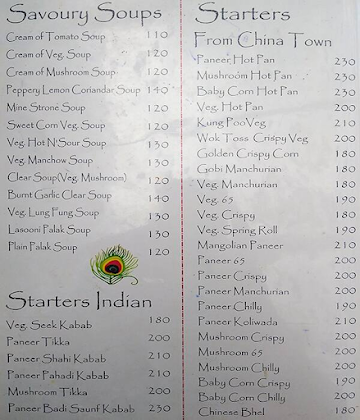 Savoury Soups
Cream of Tomato Soup 110
Cream of Veg. Soup 120
Cream of Mushroom Soup 120
Peppery Lemon Coriandar Soup 140
Mine Strone Soup 120
Sweet Corn Veg. Soup 120
Veg. Hot N'Sour Soup 130
Veg. Manchow Soup 130
Clear Soup(Veg. Mushroom) 120
Burnt Garlic Clear Soup 140
Veg. Lung Fung Soup 130
Lasooni Palak Soup 130
Plain Palak Soup 120
Starters Indian
Veg. Seek Kabab 180
Paneer Tikka 200
Paneer Shahi Kabab 210
Paneer Pahadi Kabab 210
Mushroom Tikka 200
Paneer Badi Saunf Kabab 230
Starters
From China Town
Paneer Hot Pan 230
Mushroom Hot Pan 230
Baby Corn Hot Pan 230
Veg. Hot Pan 200
Kung Poo Veg 210
Wok Toss Crispy Veg 200
Golden Crispy Corn 180
Gobi Manchurian 180
Veg. Manchurian 180
Veg. 65 190
Veg. Crispy 180
Veg. Spring Roll 190
Mangolian Paneer 210
Paneer 65 200
Paneer Crispy 200
Paneer Manchurian 200
Paneer Chilly 190
Paneer Koliwada 210
Mushroom Crispy 200
Mushroom 65 200
Mushroom Chilly 200
Baby Corn Crispy 190
Baby Corn Chilly 200
Chinese Bhel 180